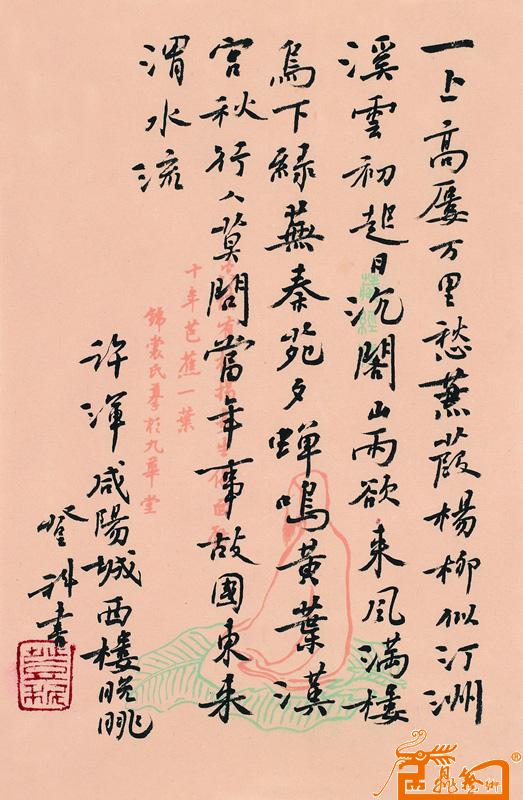 一上高屢万里愁蒹葭楊柳似汀洲
溪雲初起日沉閣山雨欲来風满楼
鳥下緑蕪秦苑夕蟬鳴黄葉漢
宫秋行人莫問當年事故國東来
渭水流
許渾咸陽城西楼晚眺
登科書
十年芭蕉一葉
錦裳氏摹於九華堂